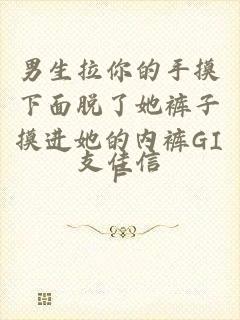 男生拉你的手摸
下面脱了她裤子
摸进她的内裤GI
支佳信
F